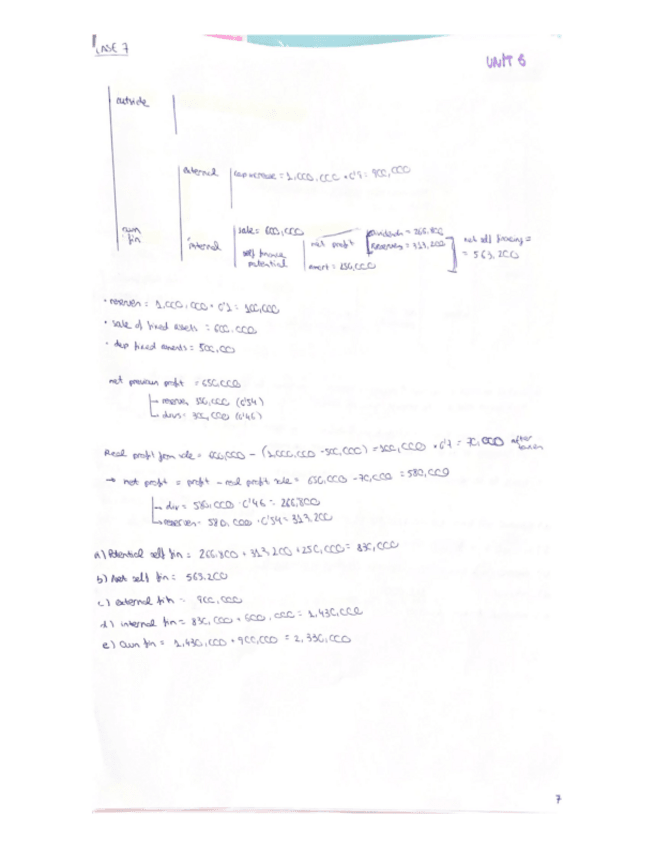 CASE 7
UNIT 6
outside
external
cap increase = 1,000,000 · 0'9 = 900,000
own fin
internal
sale = 600,000
self finance potential
net profit
dividends = 266,800
reserves = 313,200
amort = 250,000
net self financing = 563,200
· reserves = 1,000,000 · 0'1 = 100,000
· sale of fixed assets = 600,000
· dep fixed assets = 500,00
net previous profit = 650,000
reserves 350,000 (0'54)
divs = 300,000 (0'46)
Real profit from sale = 600,000 - (1,000,000 - 500,000) = 100,000 · 0'7 = 70,000 after taxes
→ net profit = profit - real profit sale = 650,000 - 70,000 = 580,000
div = 580,000 · 0'46 = 266,800
reserves = 580,000 · 0'54 = 313,200
a) Potential self fin = 266,800 + 313,200 + 250,000 = 830,000
b) Net self fin = 563.200
c) external fin = 900,000
d) internal fin = 830,000 + 600,000 = 1,430,000
e) Own fin = 1,430,000 + 900,000 = 2,330,000
7